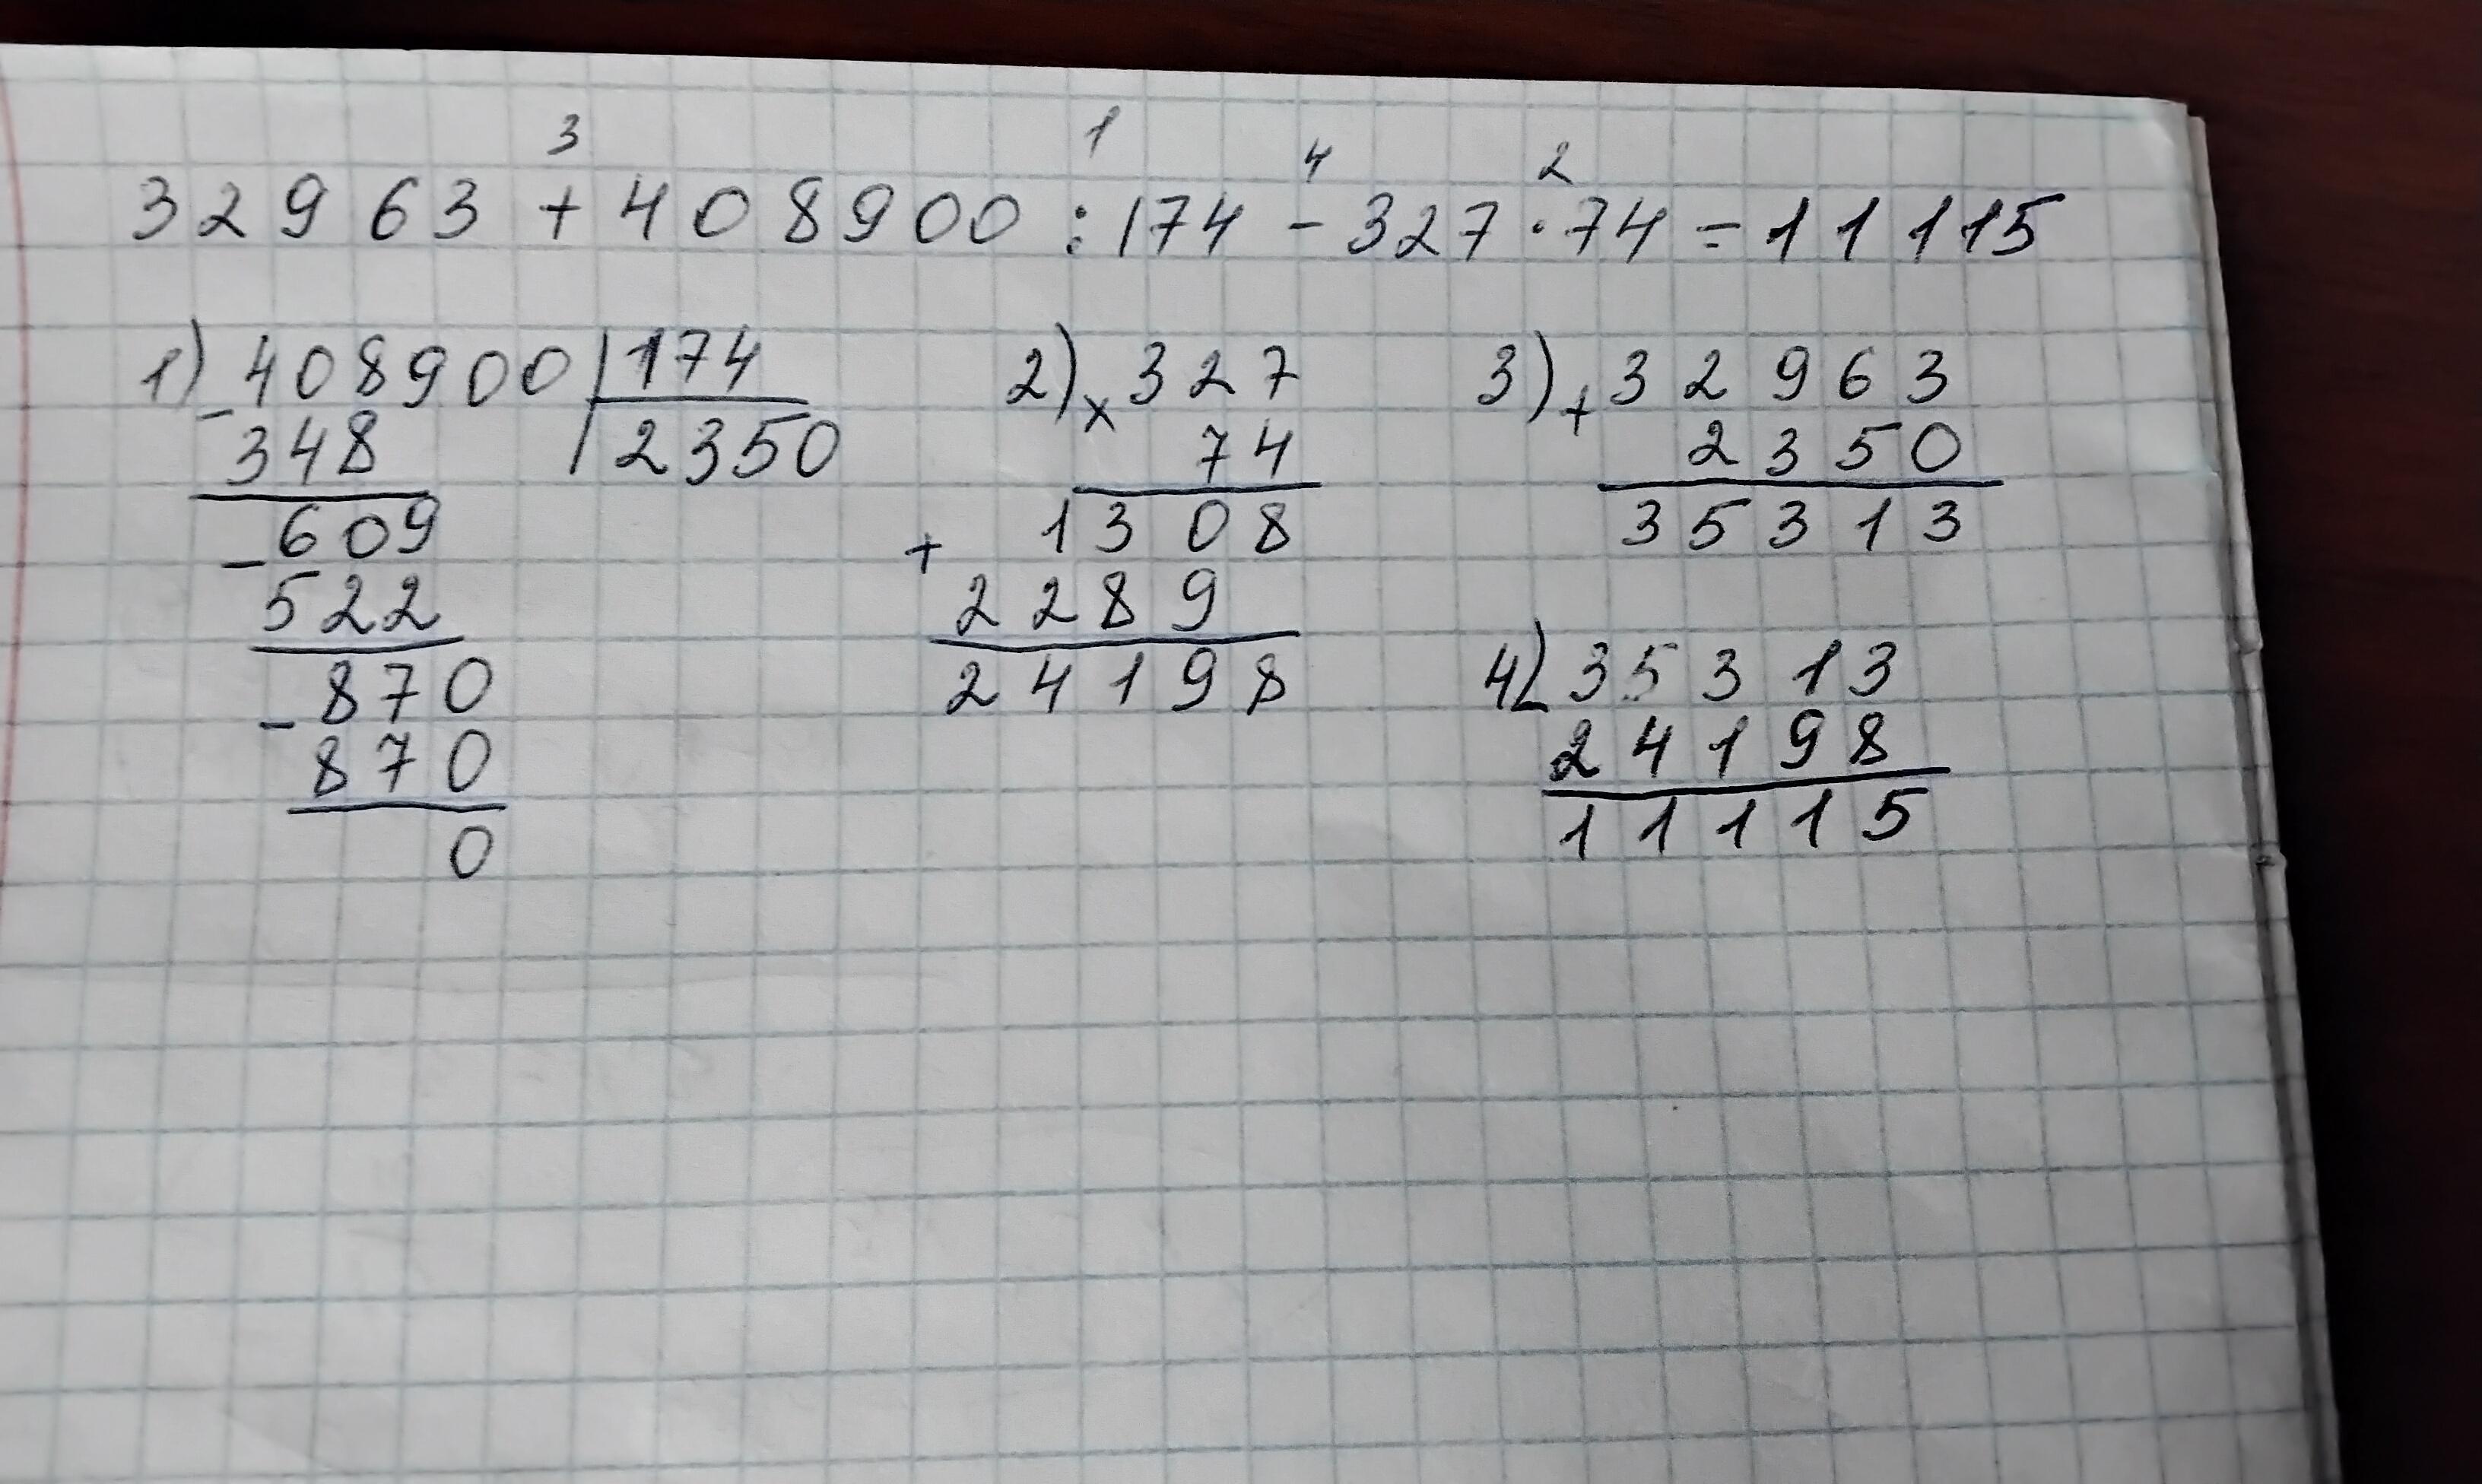 3 1 4 2
32963 + 408900 : 174 - 327 · 74 = 11115
1) 408900 | 174
- 348 | 2350
609
- 522
870
- 870
0
2) × 327
74
1308
+ 2289
24198
3) + 32963
2350
35313
4) - 35313
24198
11115